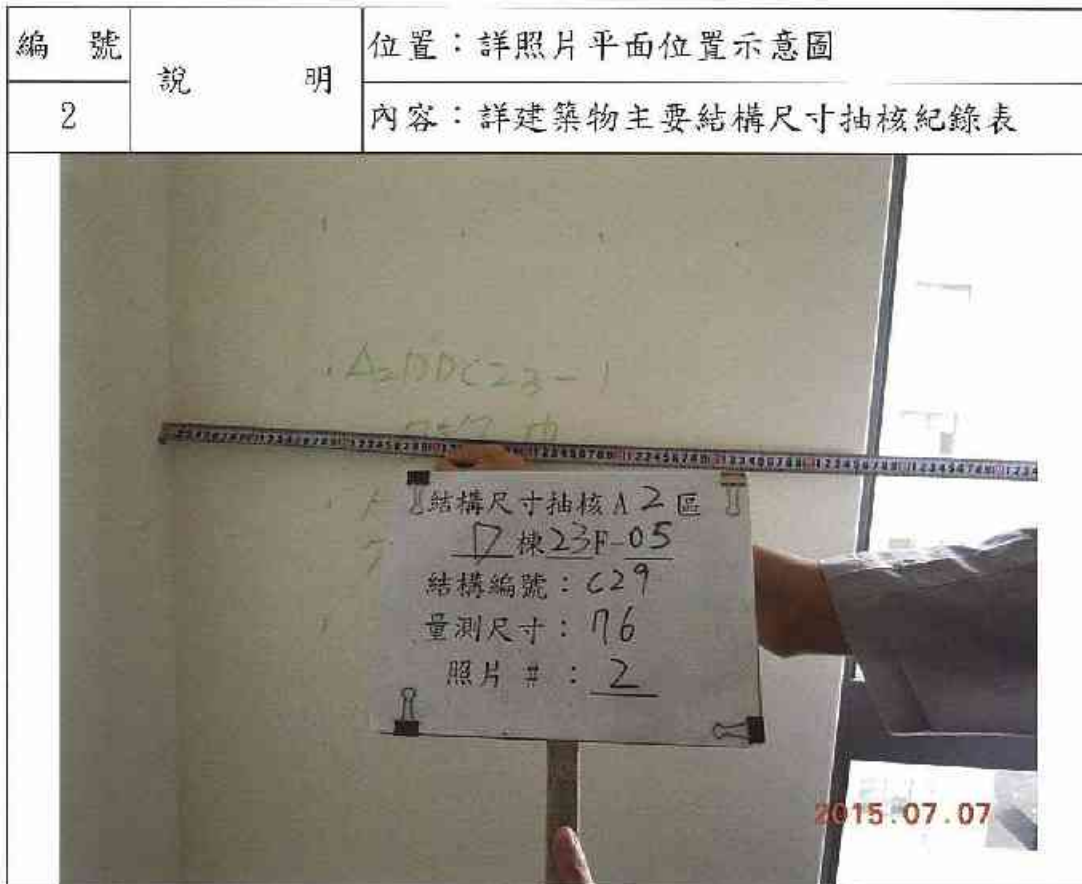 編 號
說 明
位置：詳照片平面位置示意圖
2
內容：詳建築物主要結構尺寸抽核紀錄表
結構尺寸抽核A2區
D棟23F-05
結構編號：C29
量測尺寸：76
照片 #：2
2015.07.07